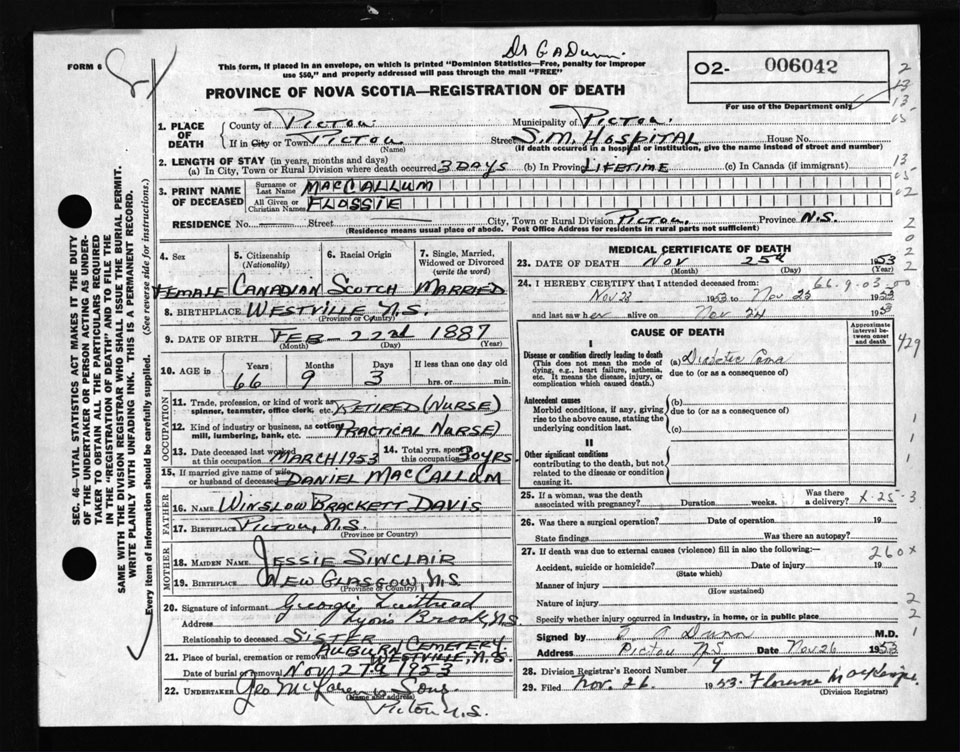 Dr G A Dunn.
FORM 6
This form, if placed in an envelope, on which is printed "Dominion Statistics—Free, penalty for improper
use $50," and properly addressed will pass through the mail "FREE"
O2- 006042
For use of the Department only
2
13
13
05
PROVINCE OF NOVA SCOTIA—REGISTRATION OF DEATH
1. PLACE OF DEATH
County of Pictou.
Municipality of Pictou.
If in City or Town Pictou
(Name)
Street S.M. Hospital House No.
(If death occurred in a hospital or institution, give the name instead of street and number)
2. LENGTH OF STAY (in years, months and days)
(a) In City, Town or Rural Division where death occurred 3 Days (b) In Province Lifetime (c) In Canada (if immigrant)
13
05
02
3. PRINT NAME OF DECEASED
Surname or Last Name MacCallum
All Given or Christian Names Flossie
RESIDENCE No. — Street — City, Town or Rural Division Pictou. Province N.S.
(Residence means usual place of abode. Post Office Address for residents in rural parts not sufficient)
2
0
2
2
4. Sex
Female
5. Citizenship
(Nationality)
Canadian
6. Racial Origin
Scotch
7. Single, Married,
Widowed or Divorced
(write the word)
Married
8. BIRTHPLACE Westville N.S.
(Province or Country)
9. DATE OF BIRTH Feb — 22nd 1887
(Month) (Day) (Year)
10. AGE in
Years 66
Months 9
Days 3
If less than one day old
hrs. or min.
OCCUPATION
11. Trade, profession, or kind of work as
spinner, teamster, office clerk, etc. Retired (Nurse)
12. Kind of industry or business, as cotton
mill, lumbering, bank, etc. Practical Nurse)
13. Date deceased last worked
at this occupation March 1953
14. Total yrs. spent
this occupation 30 yrs.
15. If married give name of wife
or husband of deceased Daniel MacCallum
FATHER
16. Name Winslow Brackett Davis
17. Birthplace Pictou, N.S.
(Province or Country)
MOTHER
18. Maiden Name Jessie Sinclair
19. Birthplace New Glasgow, N.S
(Province or Country)
20. Signature of informant Georgie
Address Lyons Brook, N.S.
Relationship to deceased Sister
21. Place of burial, cremation or removal Auburn Cemetery
Westville, N.S.
Date of burial or removal Nov 27th 1953
22. UNDERTAKER Geo McLaren & Sons.
(Name and address)
Pictou N.S.
MEDICAL CERTIFICATE OF DEATH
23. DATE OF DEATH Nov 25th 1953
(Month) (Day) (Year)
24. I HEREBY CERTIFY that I attended deceased from: 66.9.03-00
Nov 23 1953 to Nov 25 1953
and last saw her alive on Nov 24 1953
CAUSE OF DEATH
Approximate
interval be-
tween onset
and death
429
I
Disease or condition directly leading to death
(This does not mean the mode of
dying, e.g., heart failure, asthenia,
etc. It means the disease, injury, or
complication which caused death.)
(a) Diabetic Coma
due to (or as a consequence)
Antecedent causes
Morbid conditions, if any, giving
rise to the above cause, stating the
underlying condition last.
(b)
due to (or as a consequence)
(c)
1
1
II
Other significant conditions
contributing to the death, but not
related to the disease or condition
causing it.
1
25. If a woman, was the death
associated with pregnancy? Duration weeks. Was there
a delivery? X-25-3
26. Was there a surgical operation? Date of operation 19
State findings Was there an autopsy?
27. If death was due to external causes (violence) fill in also the following:— 260X
Accident, suicide or homicide? Date of injury 19
(State which)
Manner of injury
(How sustained)
Nature of injury 2
Specify whether injury occurred in industry, in home, or in public place 2
Signed by Dunn M.D. 1
Address Pictou N.S Date Nov 26 1953
28. Division Registrar's Record Number
29. Filed Nov. 26 1953. Florence MacKenzie
(Division Registrar)
SEC. 46—VITAL STATISTICS ACT MAKES IT THE DUTY
OF THE UNDERTAKER OR PERSON ACTING AS UNDER-
TAKER TO OBTAIN ALL THE PARTICULARS REQUIRED
IN THE "REGISTRATION OF DEATH" AND TO FILE THE
SAME WITH THE DIVISION REGISTRAR WHO SHALL ISSUE THE BURIAL PERMIT.
WRITE PLAINLY WITH UNFADING INK. THIS IS A PERMANENT RECORD.
Every item of information should be carefully supplied. (See reverse side for instructions.)